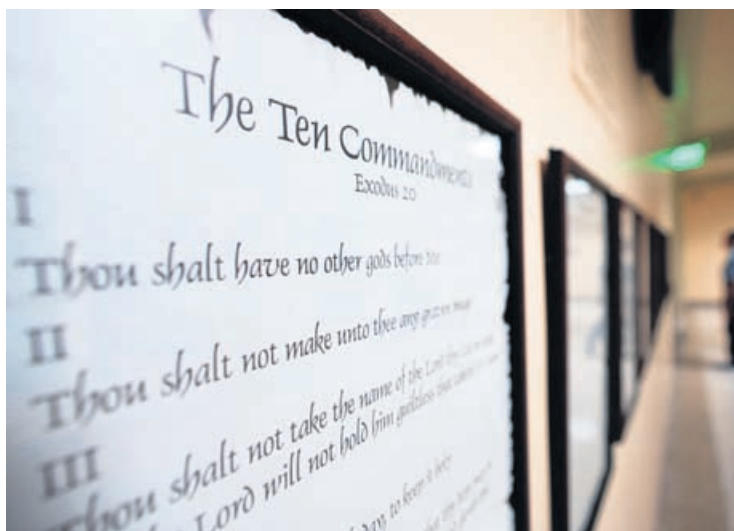 The Ten Commandments
Exodus 20
I
Thou shalt have no other gods before me
II
Thou shalt not make unto thee any graven image
III
Thou shalt not take the name of the Lord thy
Lord will not hold him guiltless that
day, to keep it holy